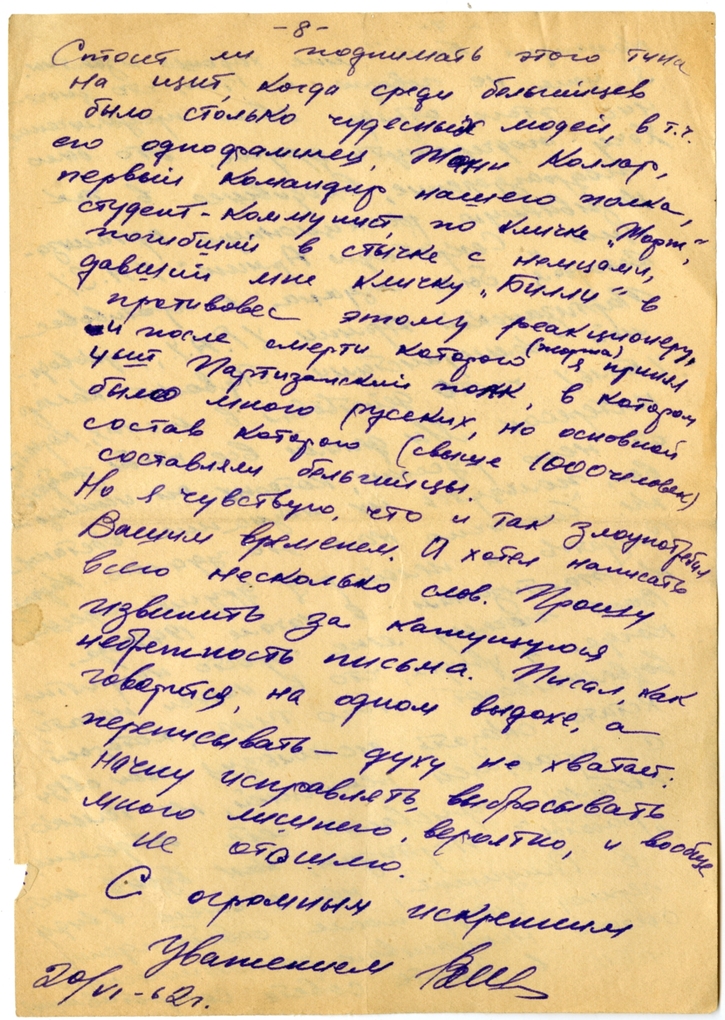 -8-
Стоит ли поднимать этого типа
на щит, когда среди бельгийцев
было столько чудесных людей, в т.ч.
его однофамилец, Жан Коллар,
первый командир нашего полка,
студент-коммунист, по кличке „Жорж",
погибший в стычке с немцами,
давший мне кличку „Билли" в
противовес этому реакционеру,
и после смерти которого (Жоржа) я принял
4ый Партизанский полк, в котором
было много русских, но основной
состав которого (свыше 1000 человек)
составляли бельгийцы.
Но я чувствую, что и так злоупотребил
Вашим временем. А хотел написать
всего несколько слов. Прошу
извинить за кажущуюся
небрежность письма. Писал как
говорится, на одном выдохе, а
переписывать – духу не хватает:
начну исправлять, выбрасывать
много лишнего, вероятно, и вообще
не отошлю.
С огромным искренним
уважением
20/VI-62г.